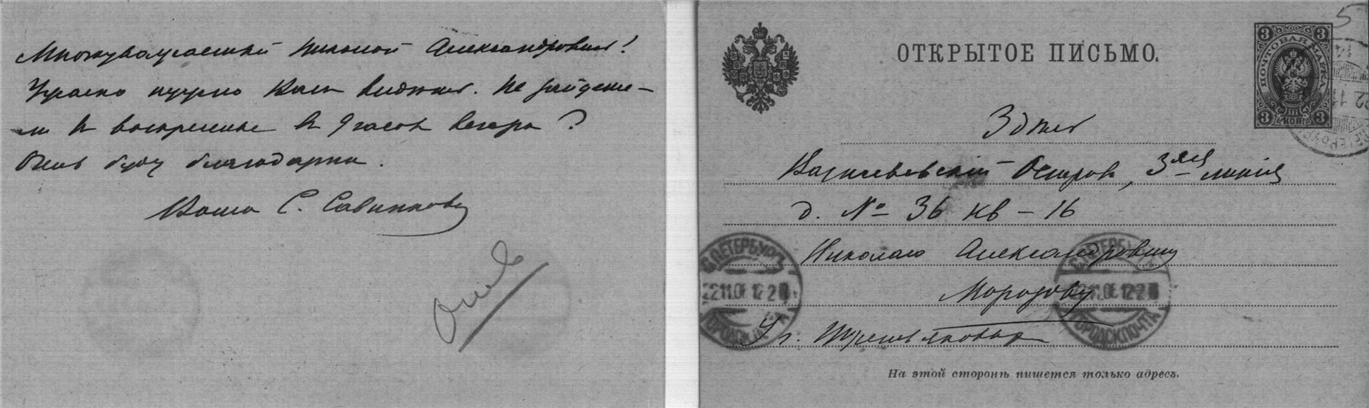 Многоуважаемый Николай Александрович!
Ужасно нужно Вас видеть. Не зайдете-
ли в воскресенье в 9 часов вечера?
Очень буду благодарна.
Ваша С. Савинкова
5
ОТКРЫТОЕ ПИСЬМО.
3 3
ПОЧТОВАЯ МАРКА
3 КОП. 3
Здесь
Васильевский Остров, 3ая линия
д. № 36 кв - 16
Николаю Александровичу
Морозову
С.ПЕТЕРБУРГЪ
22.11.06
ГОРОДСК.ПОЧТА
ГОРОДСК.ПОЧТА
У г.
На этой сторонѣ пишется только адресъ.